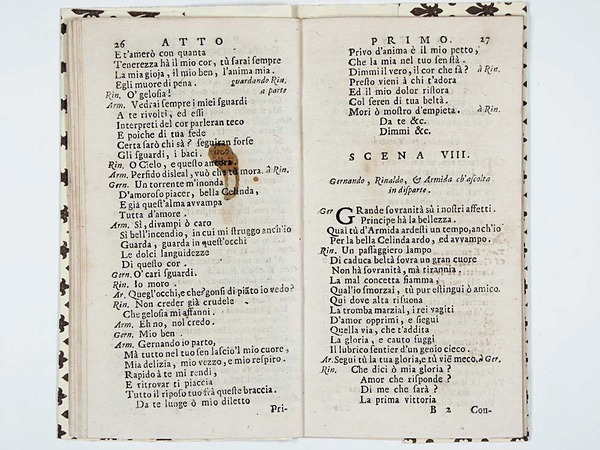 26 ATTO
E t'amerò con quanta
Tenerezza hà il mio cor, tù sarai sempre
La mia gioja, il mio ben, l'anima mia.
Egli muore di pena. guardando Rin.
Rin. O' gelosia! a parte
Arm. Vedrai sempre i miei sguardi
A te rivolti, ed essi
Interpreti del cor parleran teco
E poiche di tua fede
Certa sarò chi sà? seguiran forse
Gli sguardi, i baci.
Rin. O Cielo, e questo ancora.
Arm. Perfido disleal, vuò che tù mora. à Rin.
Gern. Un torrente m'inonda
D'amoroso piacer, bella Celinda,
E già quest'alma avvampa
Tutta d'amore.
Arm. Sì, divampi ò caro
Sì bell'incendio, in cui mi struggo anch'io
Guarda, guarda in quest'occhi
Le dolci languidezze
Di questo cor.
Gern. O' cari sguardi.
Rin. Io moro.
Ar. Quegl'occhi, e che? gonfi di piãto io vedo?
Rin. Non creder già crudele
Che gelosia mi affanni.
Arm. Eh no, nol credo.
Gern. Mio ben
Arm. Gernando io parto,
Mà tutto nel tuo sen lascio'l mio cuore,
Mia delizia, mio vezzo, e mio respiro.
Rapido à te mi rendi,
E ritrovar ti piaccia
Tutto il riposo tuo frà queste braccia.
Da te lunge ò mio diletto
Pri-
PRIMO. 27
Privo d'anima è il mio petto,
Che la mia nel tuo sen stà.
Dimmi il vero, il cor che fà? à Rin.
Presto vieni à chi t'adora
Ed il mio dolor ristora
Col seren di tua beltà.
Mori ò mostro d'empieta. à Rin.
Da te &c.
Dimmi &c.
SCENA VIII.
Gernando, Rinaldo, & Armida ch'ascolta
in disparte.
Ger GRande sovranità sù i nostri affetti.
Principe hà la bellezza.
Qual tù d'Armida ardesti un tempo, anch'io
Per la bella Celinda ardo, ed avvampo.
Rin. Un passaggiero lampo
Di caduca beltà sovra un gran cuore
Non hà sovranità, mà tirannia.
La mal concetta fiamma,
Qual'io smorzai, tù pur estingui ò amico.
Qui dove alta risuona
La tromba marzial, i rei vagiti
D'amor opprimi, e siegui
Quella via, che t'addita
La gloria, e cauto fuggi
Il lubrico sentier d'un genio cieco.
Ar. Segui tù la tua gloria, e tù viẽ meco, à Ger.
Rin. Che dici ò mia gloria?
Amor che risponde?
Di me che sarà?
La prima vittoria
B 2 Con-